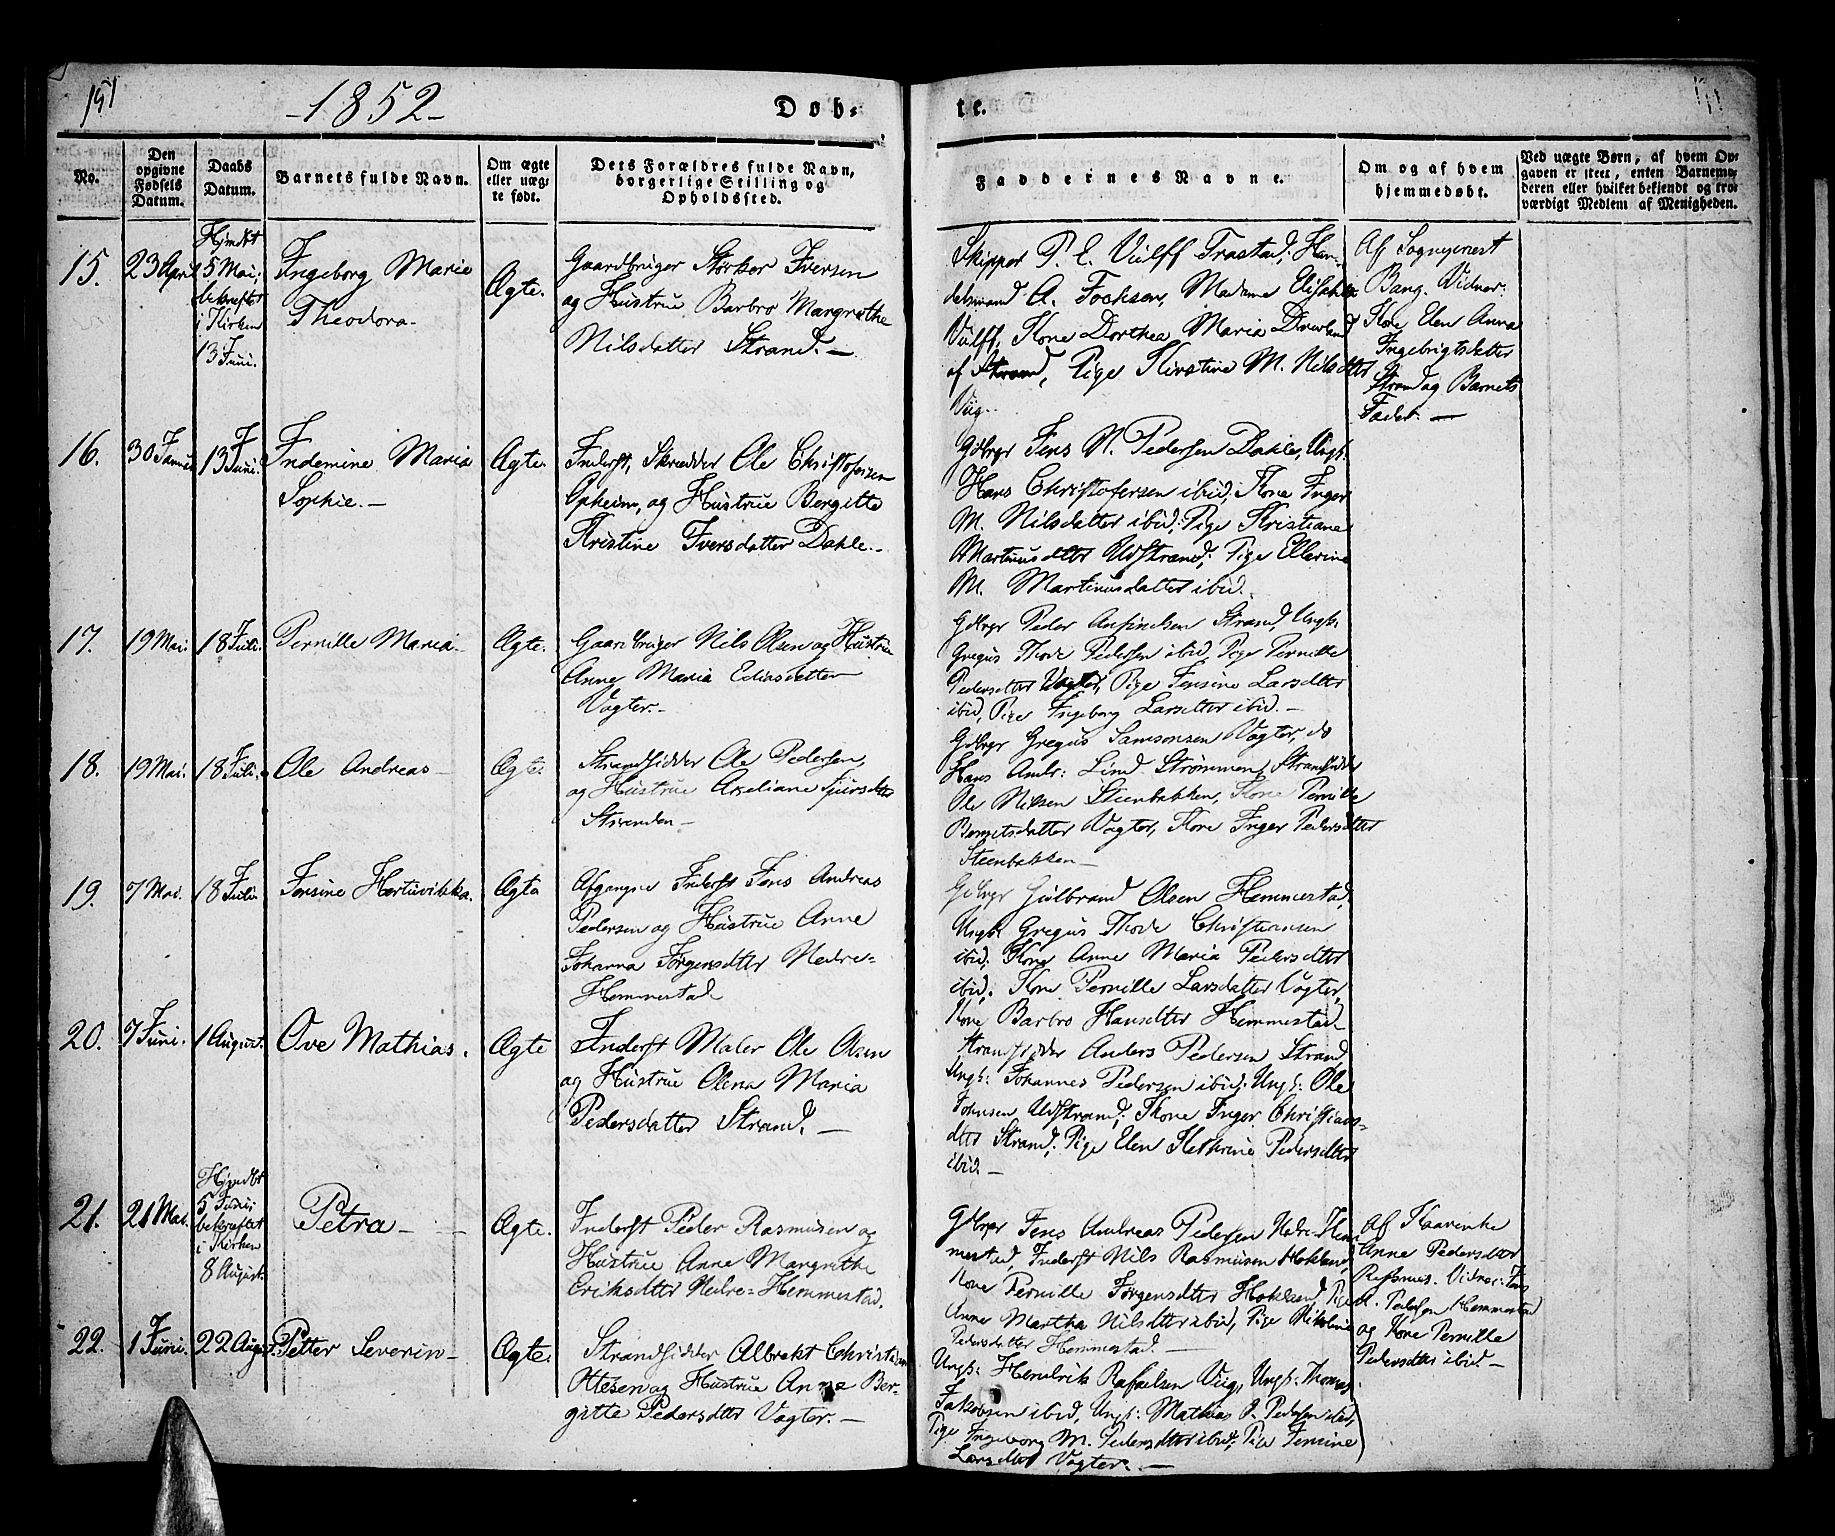 191
-1852-
Døb-
te.
No.
Den
opgivne
Fødsels
Datum.
Daabs
Datum.
Barnets fulde Navn.
Om ægte
eller uæg-
te født.
Dets Forældres fulde Navn,
borgerlige Stilling og
Opholdssted.
Faddernes Navne.
Om og af hvem
hjemmedøbt.
Ved uægte Børn, af hvem Op-
gaven er skeet, enten Barnemo-
deren eller hvilket bekjendt og tro-
værdigt Medlem af Menigheden.
15.
23 April
Hjmdbt
5 Mai;
bekræftet
i Kirken
13 Juni.
Ingeborg Marie
Theodora.
Ægte.
Gaardbruger Størker Iversen
og Hustrue Barbro Margrethe
Nilsdatter Strand. —
Skipper P. E. Vulff Trastad; Han-
delsmand A. Fochsen, Madame Elisabeth
Vulff, Kone Dorthea Maria
af Strand, Pige Kirstine M. Nilsdtter
Viig.
Af Sognepræst
Bang. Vidner:
Kone Elen Anna
Ingebrigtsdatter
Strand og Barnets
Fader. —
16.
30 Januar
13 Juni.
Indemine Maria
Sophie. —
Ægte.
Inderst, Skrædder Ole Christofersen
Opheim, og Hustrue Bergitte
Kristine Iversdatter Dahle. -
Gdbrgr Jens N. Pedersen Dahle, Ungk.
Hans Christofersen ibid; Kone Inger
M. Nilsdatter ibid; Pige Kristiane
Martinusdtter Udstrand; Pige Ellerine
M. Martinusdatter ibid.
17.
19 Mai.
18 Juli.
Pernille Maria.
Ægte.
Gaardbruger Nils Olsen og Hustrue
Anne Maria Eliasdatter
Vogter. -
Gdbrgr Peder Anfindsen Strand, Ungk.
Gregus Thode Pedersen ibid, Pige Pernille
Pedersdtter Vogter, Pige Jensine Larsdtter
ibid, Pige Ingeborg Larsdtter ibid. —
18.
19 Mai.
18 Juli.
Ole Andreas -
Ægte.
Strandsidder Ole Pedersen,
og Hustrue Axeliane Sjursdtter
Stranden -
Gdbrgr Gregus Samsonsen Vogter, do
Hans Andr: Lind Strømmen, Strandsidder
Ole Nilsen Steenbakken, Kone Pernille
Berntsdatter Vogter, Kone Inger Pedersdtter
Steenbakken -
19.
7 Mai.
18 Juli.
Jensine Hartuvikka.
Ægte
Afgangne Inderst Jens Andreas
Pedersen og Hustrue Anne
Johanna Jørgensdtter Nedre-
Hemmestad
Gdbrgr Gulbrand Olsen Hemmestad,
Ungk. Gregus Thode Christiansen
ibid; Kone Anne Maria Pedersdtter
ibid; Kone Pernille Larsdatter Vogter,
Kone Barbro Hansdtter Hemmestad
20.
7 Juni.
1 August.
Ove Mathias.
Ægte
Inderst Maler Ole Olsen
og Hustrue Olena Maria
Pedersdatter Strand. —
Strandsidder Anders Pedersen Strand
Ungk: Johannes Pedersen ibid; Ungk: Ole
Johnsen Udstrand; Kone Inger Christians-
dtter Strand; Pige Elen Kathrine Pedersdtter
ibid. —
21.
21 Mai.
Hjmdbt
5 Juni
bekræftet
i Kirken
8 August.
Petra -
Ægte.
Inderst Peder Rasmusen og
Hustrue Anne Margrethe
Eriksdtter Nedre-Hemmestad.
Gdbrgr Jens Andreas Pedersen Nedre-Hem-
mestad, Inderst Nils Rasmusen Hokland,
Kone Pernille Jørgensdtter Hokland, Pige
Anne Martha Nilsdtter ibid, Pige Nikoline
Pedersdatter Hemmestad. —
Af Kaarenke
Anne Pedersdtter
Refsnes. Vidner: Jens
A. Pedersen Hemmestad
og Kone Pernille
Pedersdtter ibid -
22.
1 Juni.
22 Aug:
Petter Severin -
Ægte.
Strandsidder Albrekt Christian
Ottesen og Hustrue Anne Ber-
gitte Pedersdtter Vogter. —
Ungk: Hendrik Rafaelsen Viig, Ungk: Thomas
Jakobsen ibid, Ungk: Mathias P. Pedersen ibid,
Pige Ingeborg M. Pedersdtter ibid, Pige Jensine
Larsdtter Vogter. —